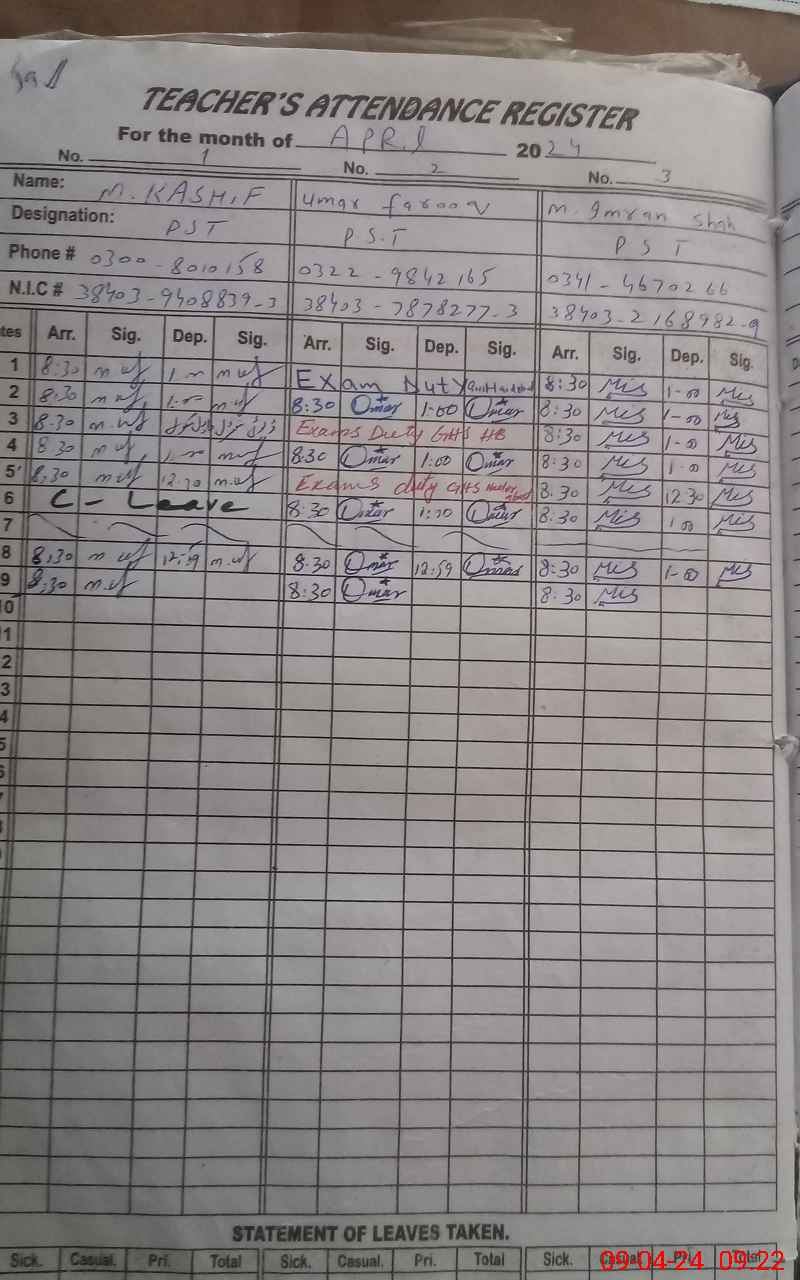 TEACHER'S ATTENDANCE REGISTER
For the month of APRIL 2024
No. 1 No. 2 No. 3
Name: M. KASHIF Umar farooq M. Imran Shah
Designation: PST P.S.T PST
Phone # 0300-8010158 0322-9842165 0341-4670266
N.I.C # 38403-9408839-3 38403-7878277-3 38403-2168982-9
tes Arr. Sig. Dep. Sig. Arr. Sig. Dep. Sig. Arr. Sig. Dep. Sig.
1 8:30 Exam Duty 8:30 1-00
2 8:30 1:00 8:30 Omar 1:00 Omar 8:30 1-00
3 8:30 Exams Duety GHS HB 8:30 1-00
4 8 30 8:30 Omar 1:00 Omar 8:30 1-00
5 8:30 12:30 Exams duty GHS 8:30 12 30
6 C - Leave 8:30 Omar Omar 8:30 1 00
7
8 8:30 12:59 8:30 Omar 12:59 Omar 8:30 1-00
9 8:30 8:30 Omar 8:30
0
1
2
3
4
5
STATEMENT OF LEAVES TAKEN.
Sick. Casual. Pri. Total Sick. Casual. Pri. Total Sick. Casual. Pri. Total
09-04-24 09:22